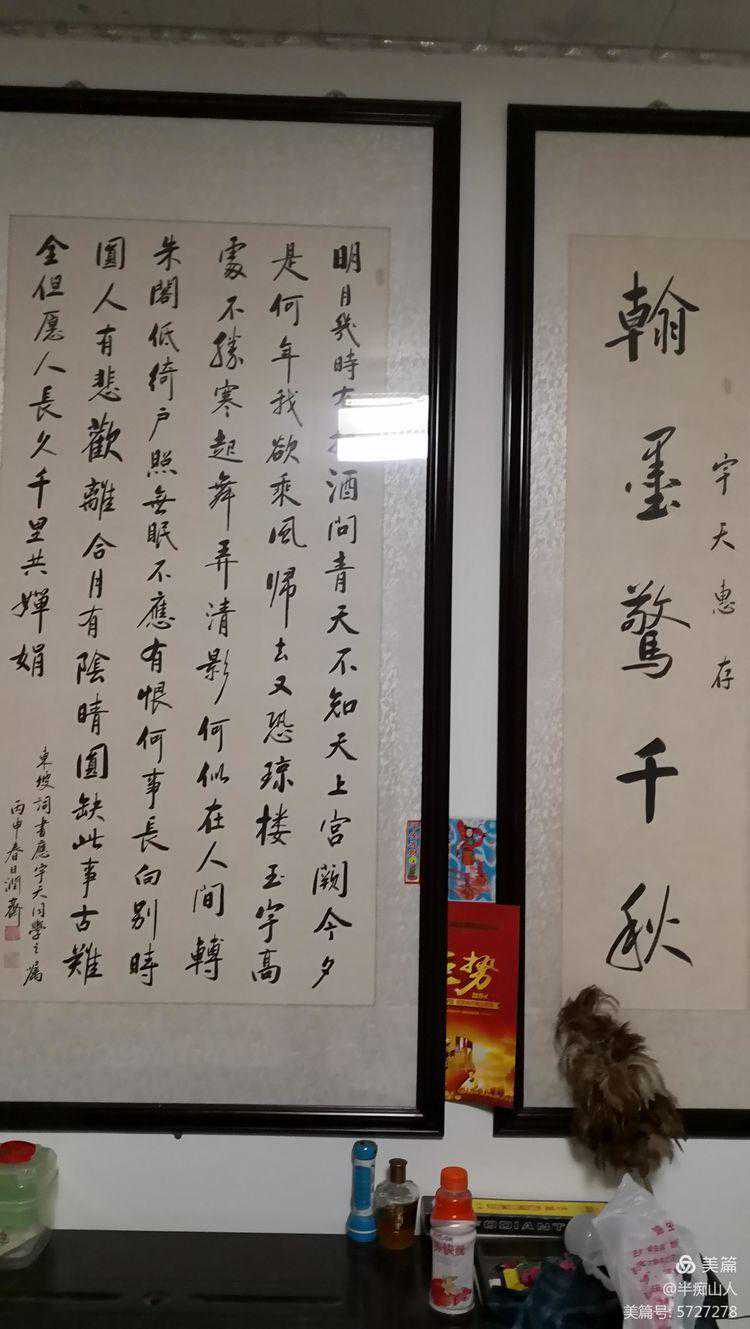 宇天惠存
翰墨驚千秋
明月幾時酒問青天不知天上宮闕今夕
是何年我欲乘風歸去又恐琼樓玉宇高
處不勝寒起舞弄清影何似在人間轉
朱閣低綺户照無眠不應有恨何事長向别時
圓人有悲歡離合月有陰晴圓缺此事古難
全但愿人長久千里共嬋娟
東坡詞書應宇天同學之屬
丙申春日潤齋
势
美篇
@半痴山人
美篇号: 5727278